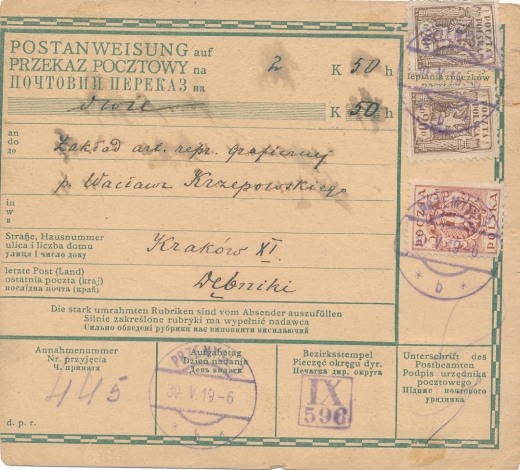 POSTANWEISUNG auf
PRZEKAZ POCZTOWY na 2 K 50 h
ПОЧТОВИЙ ПЕРЕКАЗ на
lepiania znaczków
dwie K 50 h
an
do
до
Zakład art. repr. graficznej
p. Wacława Krzepowskiego
in
w
в
Straße, Hausnummer
ulica i liczba domu
улиця і число дому
Kraków XI
letzte Post (Land)
ostatnia poczta (kraj)
послїдна почта (край)
Dębniki
Die stark umrahmten Rubriken sind vom Absender auszufüllen
Silnie zakreślone rubryki ma wypełnić nadawca
Сильно обведені рубрики має виповнити висилаючий
Annahmenummer
Nr. przyjęcia
Ч. принята
445
d. p. r.
Aufgabetag
Dzień nadania
День надання
V. 19-6
b
Bezirksstempel
Pieczęć okręgu dyr.
Печатка дир. округа
IX
596
Unterschrift des
Postbeamten
Podpis urzędnika
pocztowego
Підпис почтового
урядника
POCZTA
POLSKA
POCZTA
POLSKA
POCZTA
POLSKA
b